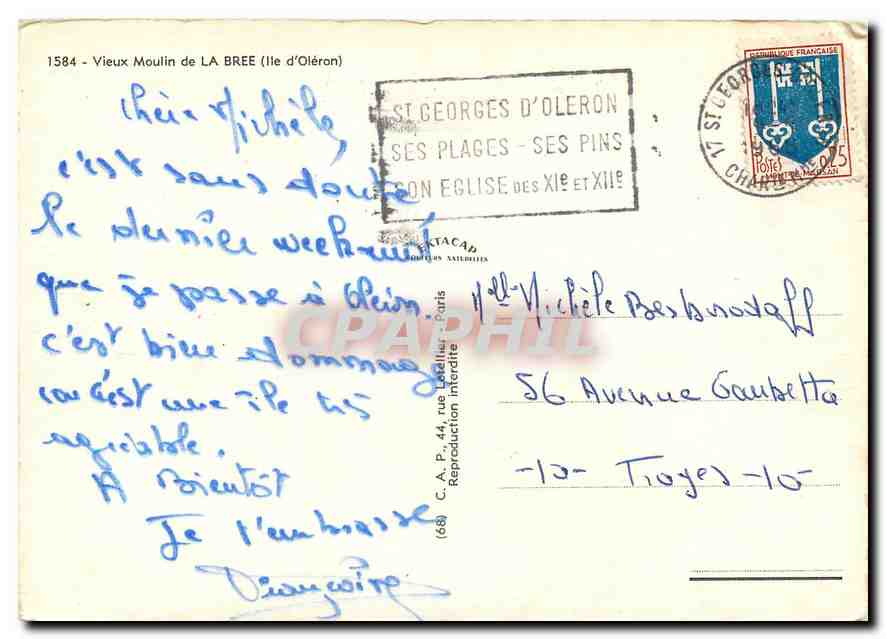 1584 - Vieux Moulin de LA BREE (Ile d'Oléron)
Chère Michèle,
c'est sans doute
le dernier week-end
que je passe à Oléron.
c'est bien dommage
car c'est une île très
agréable.
A Bientôt
Je t'embrasse
Françoise
ST GEORGES D'OLERON
SES PLAGES - SES PINS
SON EGLISE DES XIe ET XIIe
17 ST GEORGES
CHARENTE
REPUBLIQUE FRANÇAISE
POSTES 0,25
MONT-DE-MARSAN
EKTACAP
COULEURS NATURELLES
(68) C. A. P., 44, rue Letellier - Paris
Reproduction interdite
CPAPHIL
Melle Michèle
56 Avenue Gambetta
-10- Troyes -10-